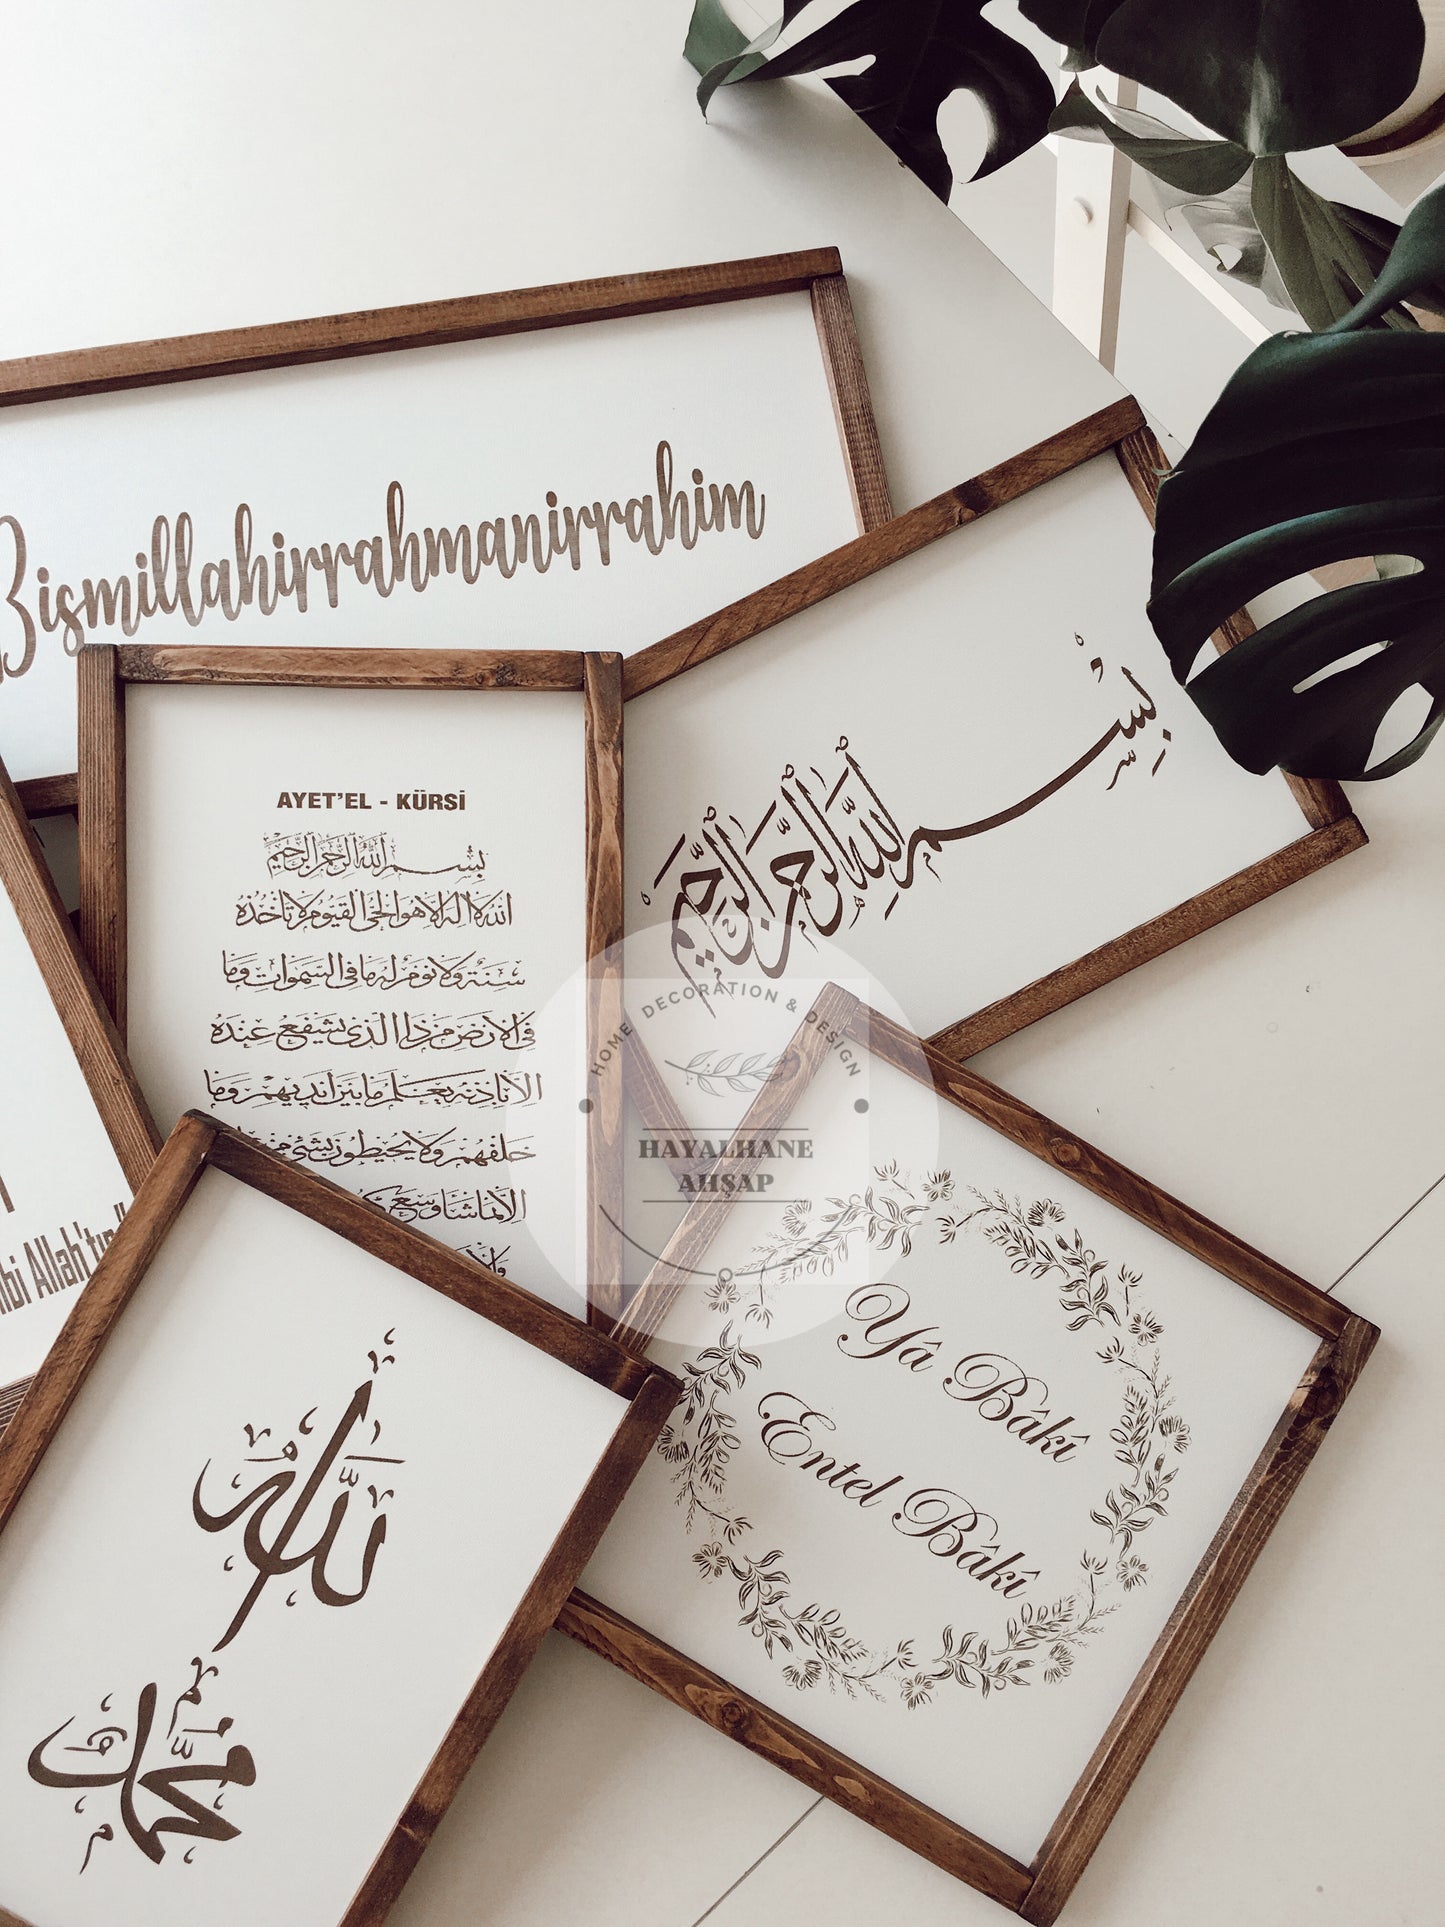 Bismillahirrahmanirrahim
بِسْمِ اللّٰهِ الرَّحْمٰنِ الرَّحِيْمِ
AYET'EL - KÜRSİ
بِسْمِ اللّٰهِ الرَّحْمٰنِ الرَّحِيْمِ
اَللّٰهُ لَا اِلٰهَ اِلَّا هُوَ الْحَىُّ الْقَيُّومُ لَا تَاْخُذُهُ
سِنَةٌ وَلَا نَوْمٌ لَهُ مَا فِى السَّمٰوَاتِ وَمَا
فِى الْاَرْضِ مَنْ ذَا الَّذٖى يَشْفَعُ عِنْدَهُ
اِلَّا بِاِذْنِهٖ يَعْلَمُ مَا بَيْنَ اَيْدٖيهِمْ وَمَا
خَلْفَهُمْ وَلَا يُحٖيطُونَ بِشَىْءٍ مِنْ
اِلَّا بِمَا شَاءَ وَسِعَ
HOME DECORATION & DESIGN
HAYALHANE
AHŞAP
Allah'tır
الله
محمد
Yâ Bâkî
Entel Bâkî